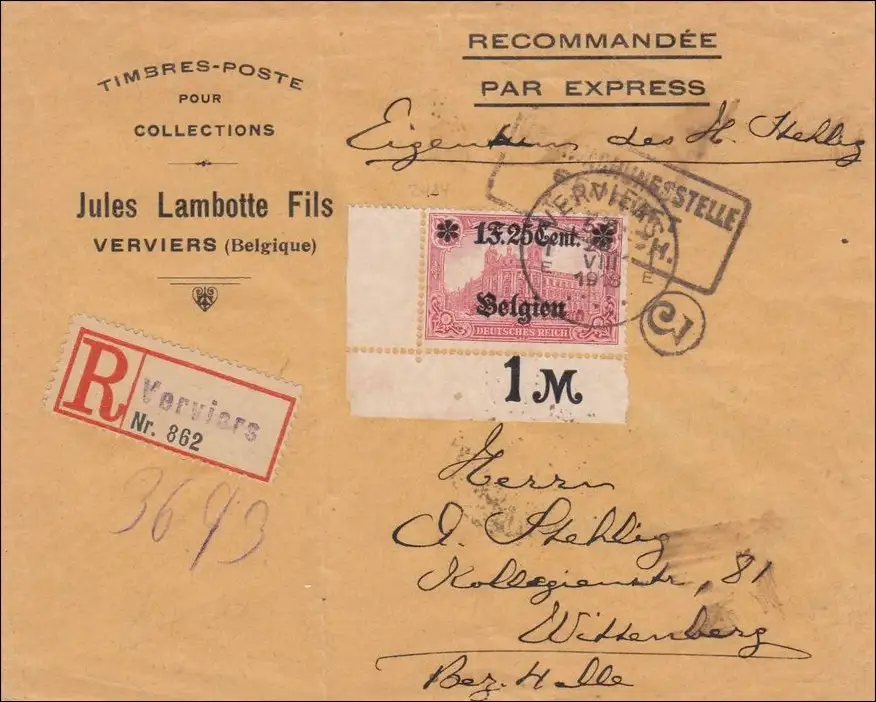 RECOMMANDÉE
PAR EXPRESS
TIMBRES-POSTE
POUR
COLLECTIONS
Jules Lambotte Fils
VERVIERS (Belgique)
Eigentum des H. Stehlig
VERVIERS
VIII
1918
E E
1F.25Cent.
Belgien
DEUTSCHES REICH
1 M
R
Verviers
Nr. 862
3693
Herrn
O. Stehlig
Kollegienstr, 81
Wittenberg
Bez. Halle